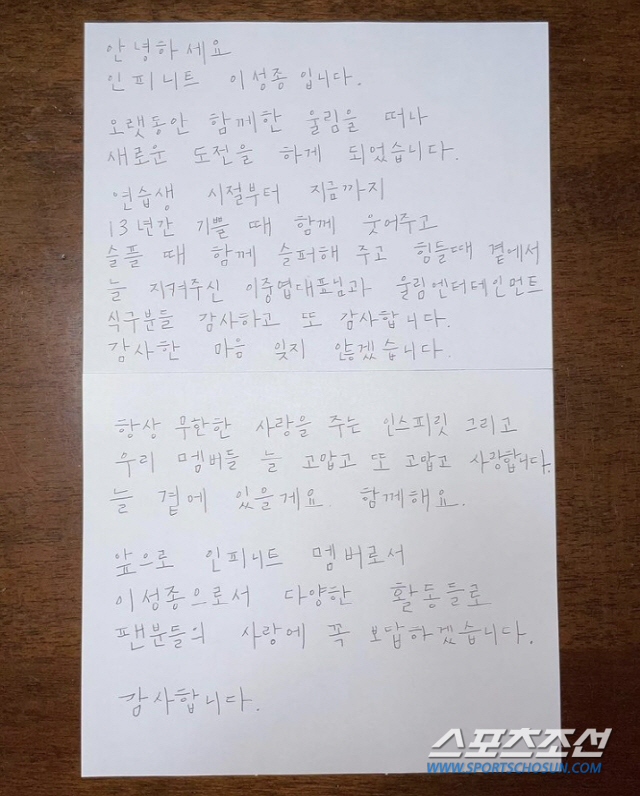 안녕하세요
인피니트 이성종 입니다.
오랫동안 함께한 울림을 떠나
새로운 도전을 하게 되었습니다.
연습생 시절부터 지금까지
13년간 기쁠 때 함께 웃어주고
슬플 때 함께 슬퍼해 주고 힘들때 곁에서
늘 지켜주신 이중엽대표님과 울림엔터테인먼트
식구분들 감사하고 또 감사합니다.
감사한 마음 잊지 않겠습니다.
항상 무한한 사랑을 주는 인스피릿 그리고
우리 멤버들 늘 고맙고 또 고맙고 사랑합니다.
늘 곁에 있을게요. 함께해요.
앞으로 인피니트 멤버로서
이성종으로서 다양한 활동들로
팬분들의 사랑에 꼭 보답하겠습니다.
감사합니다.
스포츠조선
WWW.SPORTSCHOSUN.COM